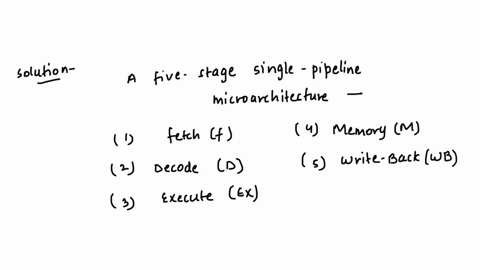 Solution-
A five-stage single-pipeline
microarchitecture —
(1) fetch (f)
(2) Decode (D)
(3) Execute (Ex)
(4) Memory (M)
(5) Write-Back (WB)